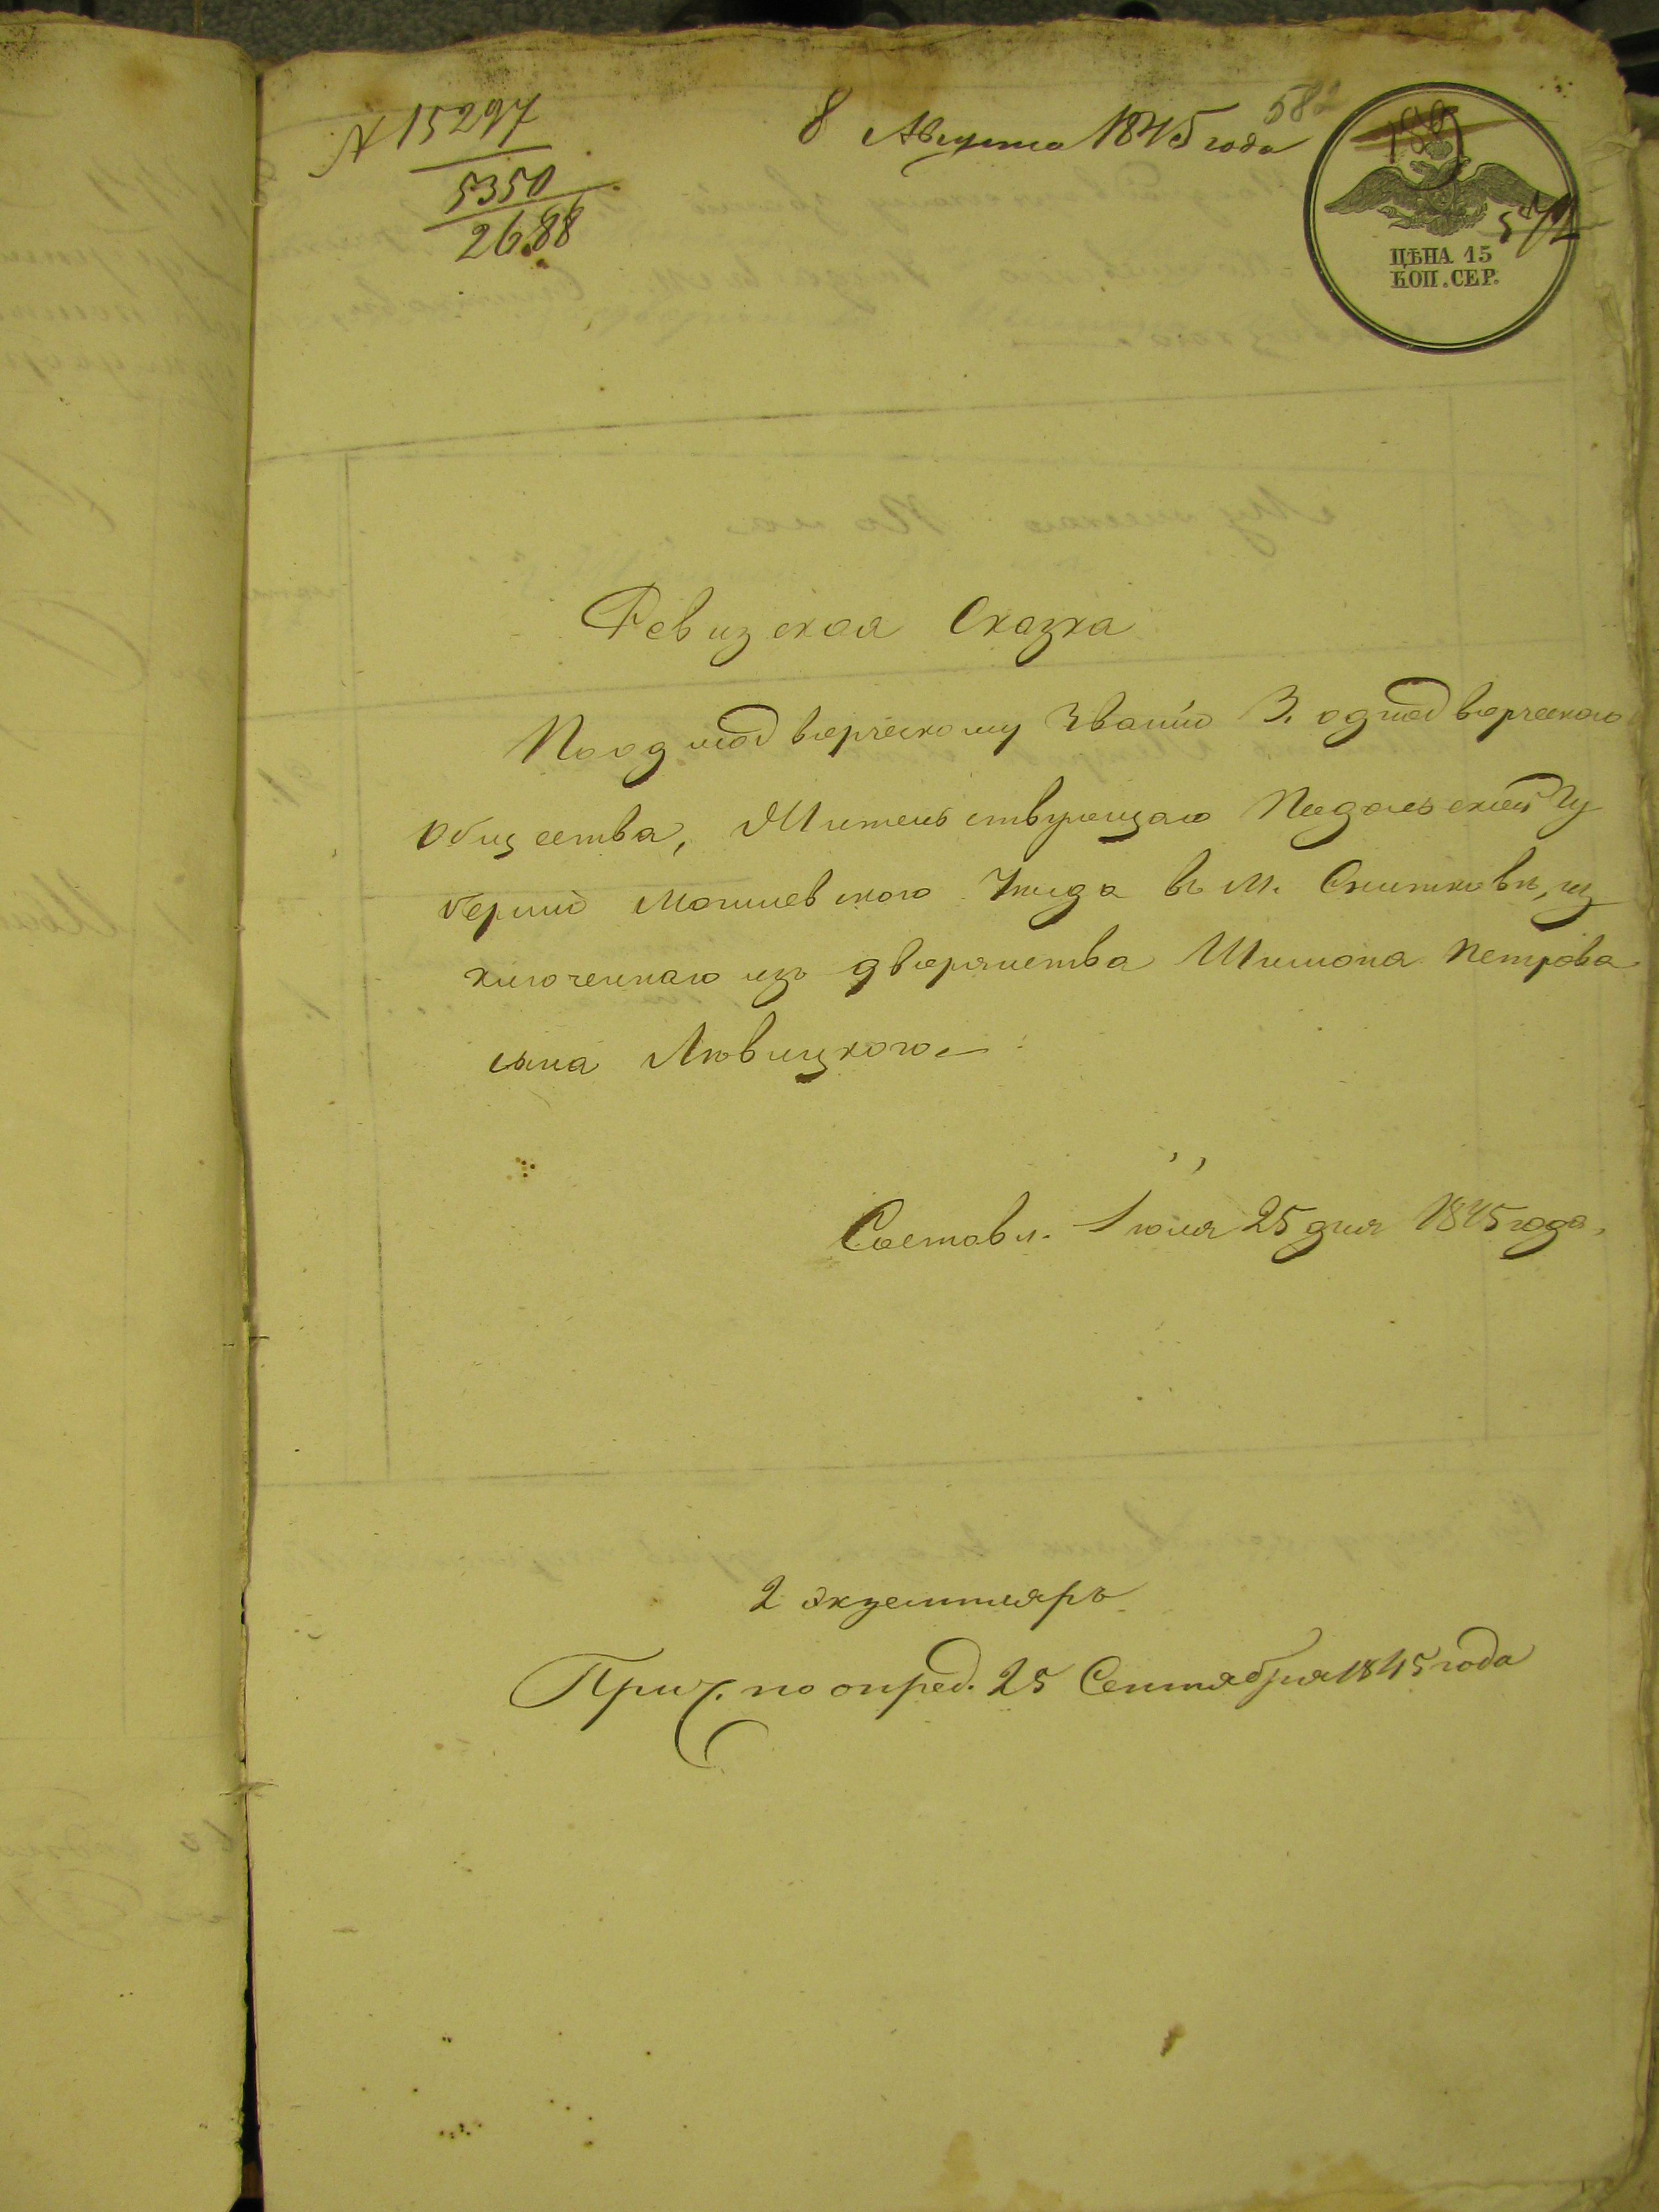 № 15269
5350
2688
8 Августа 1845 года
582
189
572
ЦѢНА 15
КОП. СЕР.
Ревизская Сказка
По однодворческому Званію 3. однодворческаго
общества, Жительствующаго Подольской Гу
берніи Могилевского Уезда въ М. Снитковѣ, из
ключеннаго изъ дворянства Шимона Петрова
сына Левицкого
Составл. Iюля 25 дня 1845 года,
2 экземпляръ
Прич. по опред. 25 Сентября 1845 года